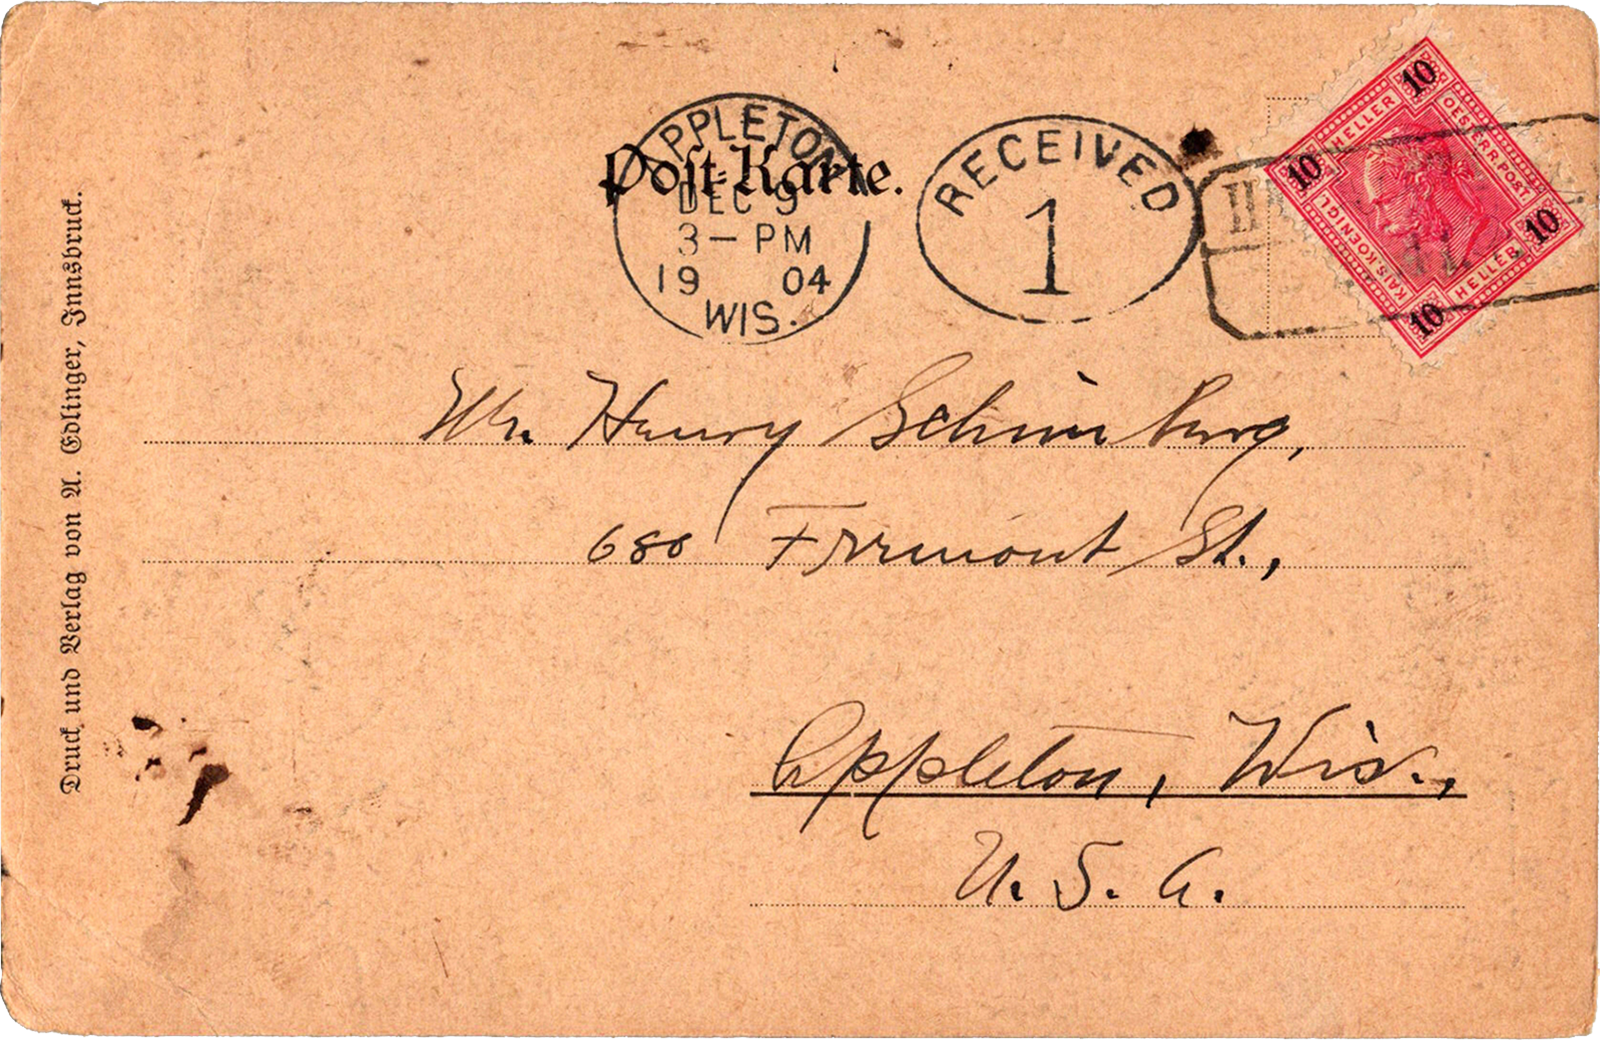 Post-Karte.
APPLETON
DEC 9
3-PM
19 04
WIS.
RECEIVED
1
10 HELLER 10
OESTERR.POST.
KAIS.KOENIGL
10 HELLER 10
Mr. Henry
680 Fremont St.,
Appleton, Wis.,
U. S. A.
Druck und Verlag von A. Edlinger, Innsbruck.